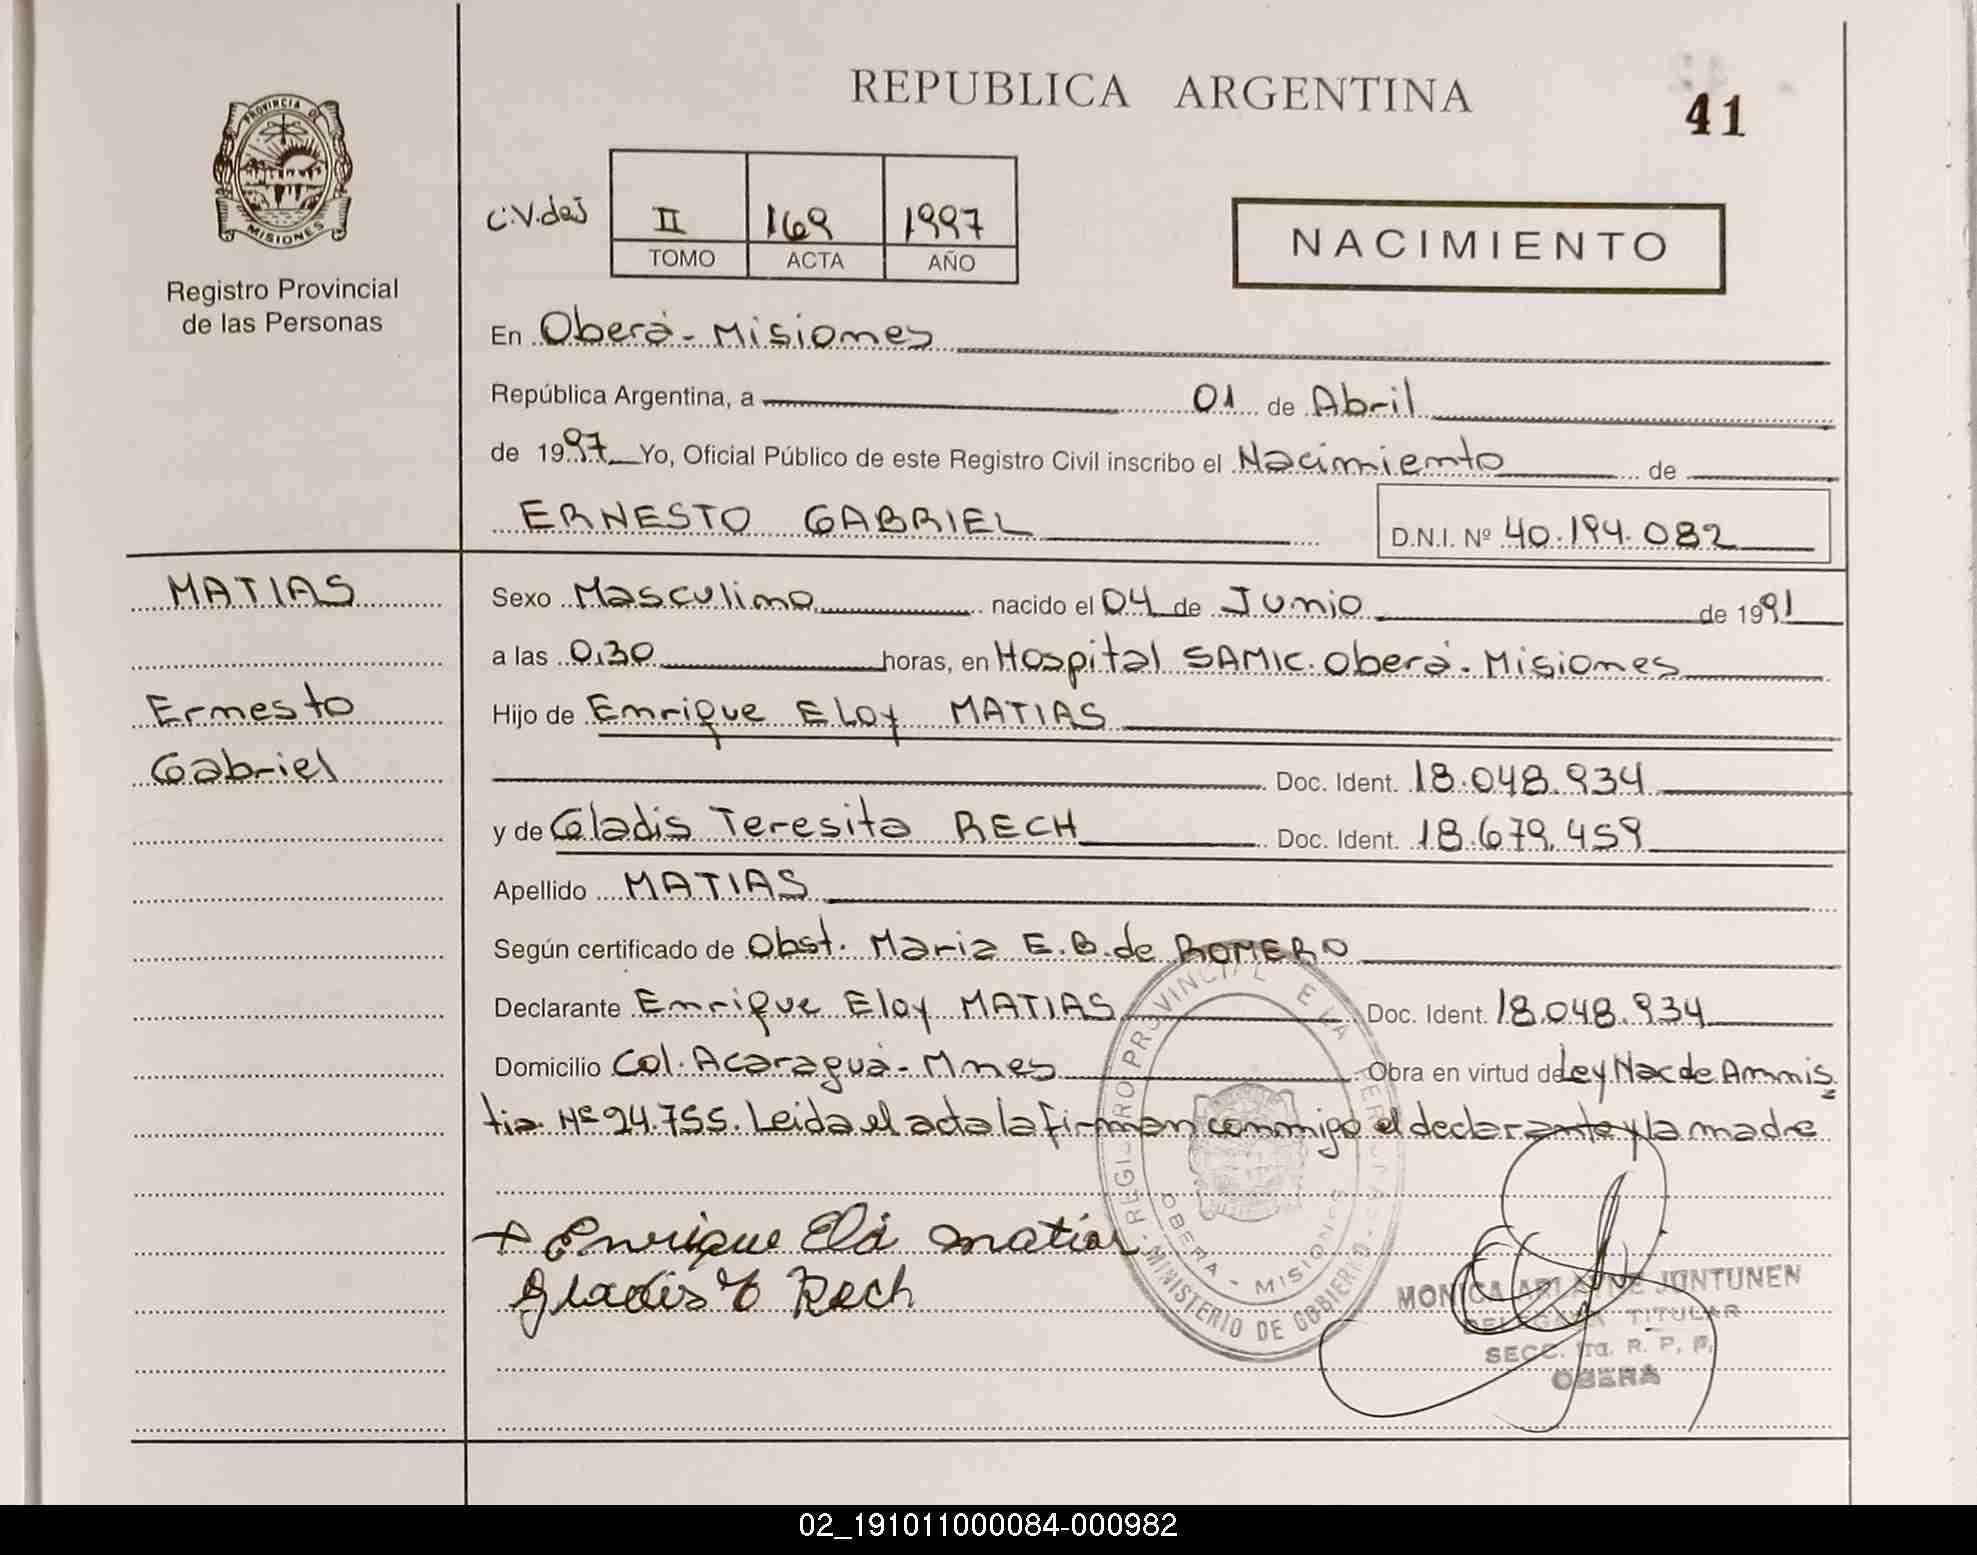 REPUBLICA ARGENTINA
41
PROVINCIA DE
MISIONES
Registro Provincial
de las Personas
II 169 1997
TOMO ACTA AÑO
NACIMIENTO
En Oberá - Misiones
República Argentina, a 01 de Abril
de 1997 Yo, Oficial Público de este Registro Civil inscribo el Nacimiento de
ERNESTO GABRIEL D.N.I. Nº 40.194.082
MATIAS
Ernesto
Gabriel
Sexo Masculino nacido el 04 de Junio de 1991
a las 0,30 horas, en Hospital SAMIC. Oberá - Misiones
Hijo de Enrique Eloy MATIAS
Doc. Ident. 18.048.934
y de Gladis Teresita RECH Doc. Ident. 18.679.459
Apellido MATIAS
Según certificado de Obst. Maria E. B. de ROMERO
Declarante Enrique Eloy MATIAS Doc. Ident. 18.048.934
Domicilio Col. Acaraguá - Mnes Obra en virtud de Ley Nac de Amnis
tia Nº 24.755. Leida el acta la firman conmigo el declarante y la madre
Enrique Elo Matias
Gladis T Rech
REGISTRO PROVINCIAL
OBERA - MISIONES
MINISTERIO DE GOBIERNO
MONICA ARIANNE JUNTUNEN
DELEGADA TITULAR
SECC. 1ra. R. P. P.
OBERA
02_191011000084-000982